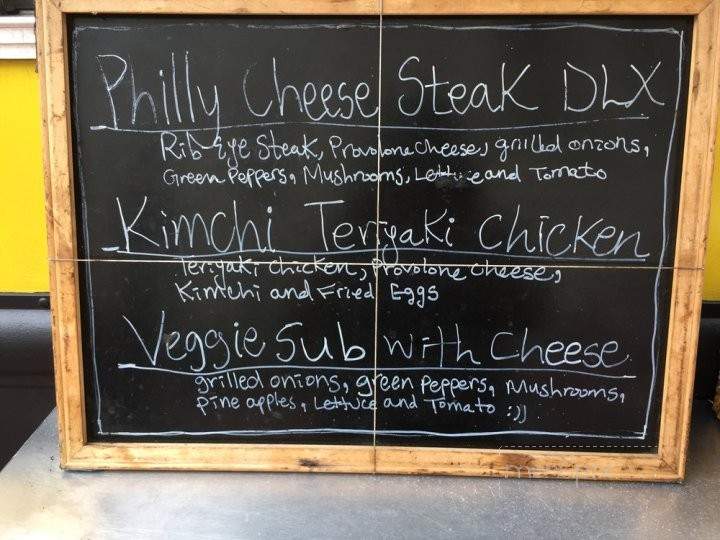 Philly Cheese Steak DLX
Rib Eye Steak, Provolone Cheese, grilled onions,
Green Peppers, Mushrooms, Lettuce and Tomato
Kimchi Teriyaki Chicken
Teriyaki Chicken, Provolone Cheese,
Kimchi and Fried Eggs
Veggie Sub With Cheese
grilled onions, green Peppers, Mushrooms,
pine apples, Lettuce and Tomato :))